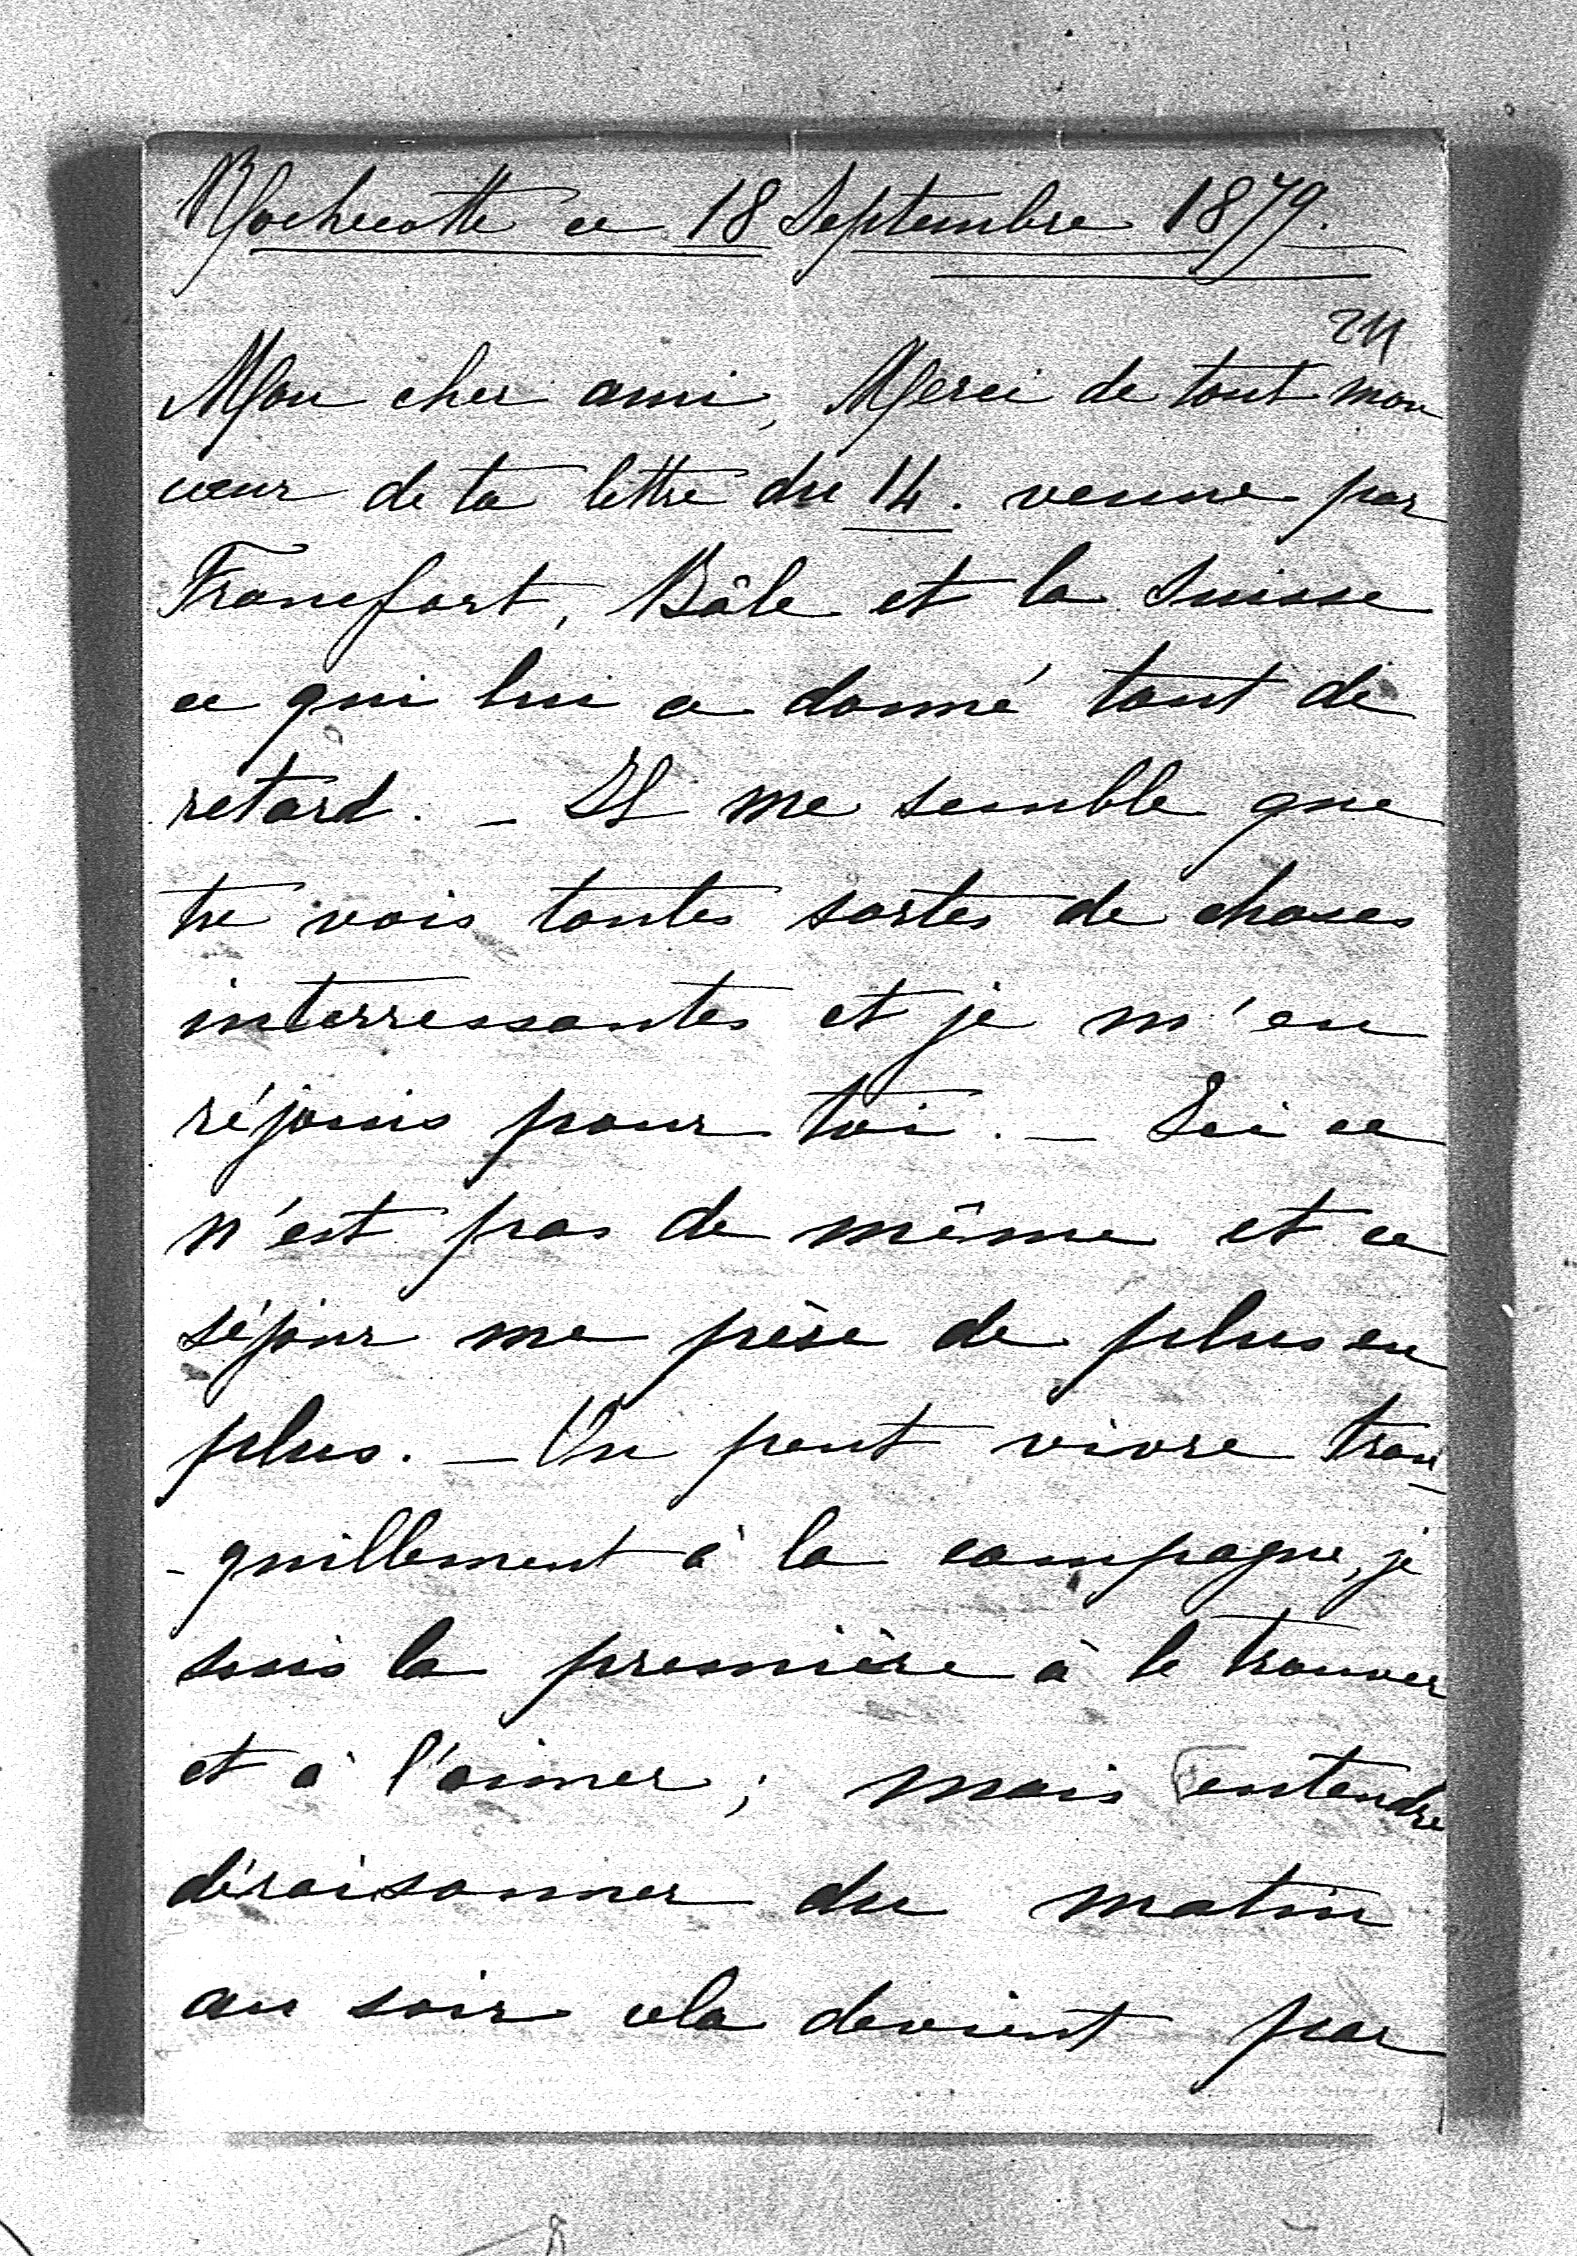 Rochecotte ce 18 Septembre 1879.
Mon cher ami, Merci de tout mon
cœur de ta lettre du 14. venue par
Francfort, Bâle et la Suisse
ce qui lui a donné tant de
retard. _ Il me semble que
tu vois toutes sortes de choses
interressantes et je m'en
réjouis pour toi. _ Ici ce
n'est pas de même et ce
séjour me pèse de plus en
plus. _ On peut vivre tran-
-quillement à la campagne, je
suis la première à le trouver
et à l'aimer; mais entendre
déraisonner du matin
au soir cela devient par